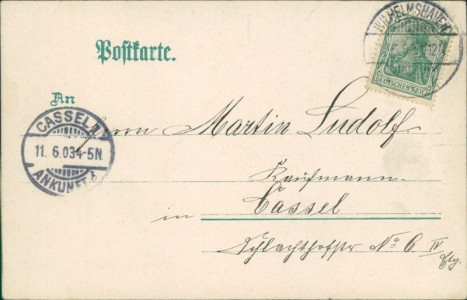 WILHELMSHAVEN
Postkarte.
DEUTSCHES REICH
An
CASSEL
11. 6.03 4-5N.
ANKUNFT
Herrn Martin Ludolf
Kaufmann
in Cassel
Schlachthofstr No 6 IV